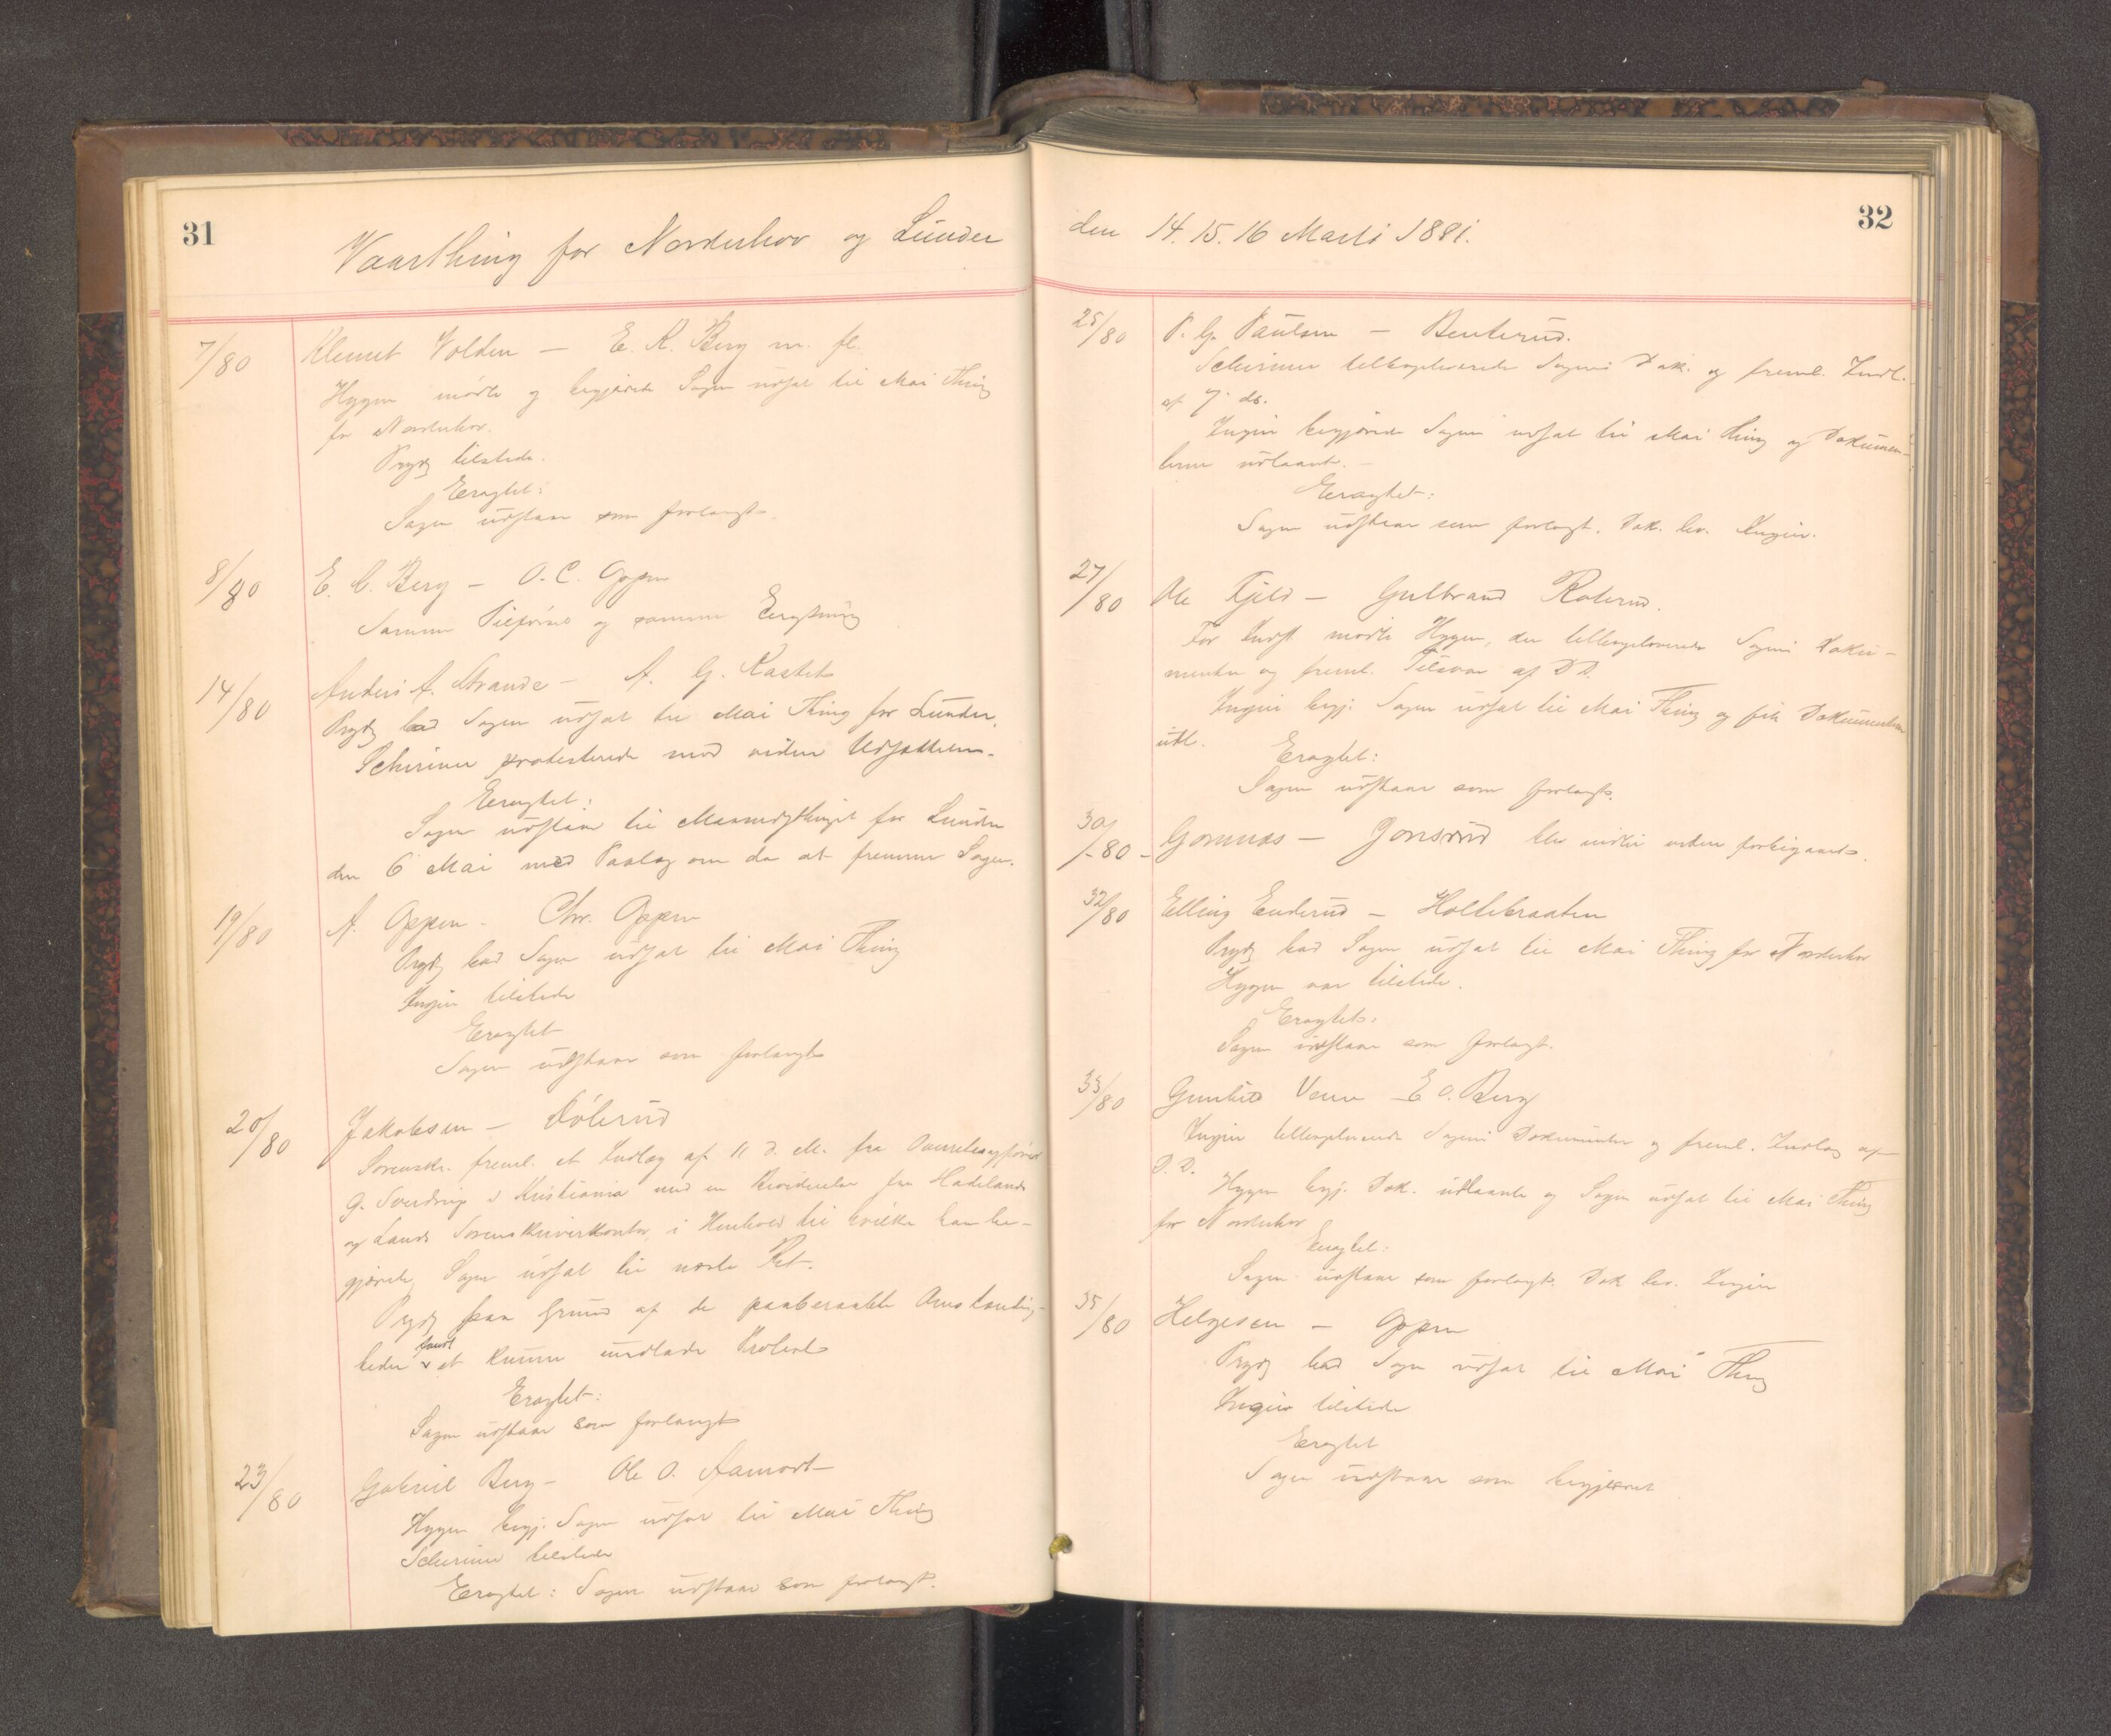 31
Vaarthing for Norderhov og Lunder
7/80 Klemet Volden — E. R. Berg m. fl.
Hygen mødte og begjærede Sagen udsat til Mai Thing
for Norderhov.
Prydz tilstede.
Eragtet:
Sagen udstaar som forlangt.
8/80 E. C. Berg — O. C. Oppen
Samme Tilførsel og samme Eragtning
14/80 Anders A. Strande — A. G. Kastet
Prydz bad Sagen udsat til Mai Thing for Lunder.
Schirmer protesterede mod videre Udsættelse.
Eragtet:
Sagen udstaar til Maanedsthinget for Lunder
den 6 Mai med Paalæg om da at fremme Sagen.
19/80 A. Oppen — Chr. Oppen
Prydz bad Sagen udsat til Mai Thing
tilstede
Eragtet
Sagen udstaar som forlangt
20/80 Jakobsen — Dølerud
Sorenskr. freml. et Indlæg af 11 d. M. fra Overretssagfører
G. Sverdrup i Kristiania med en fra Hadeland
og Lands Sorenskriverkontor, i Henhold til hvilke han be-
gjærede Sagen udsat til næste Ret.
Prydz paa Grund af de paaberaabte Omstændig-
heder fandt at kunne undlade Protest
Eragtet:
Sagen udstaar som forlangt
23/80 Gabriel Berg — Ole O. Aamodt
Hygen begj. Sagen udsat til Mai Thing
Schirmer tilstede
Eragtet: Sagen udstaar som forlangt.
32
den 14. 15. 16 Marts 1881.
25/80 P. G. Paulsen — Benterud.
Schirmer tilbageleverede Sagens Dok. og freml. Indl.
af 7. ds.
begjærede Sagen udsat til Mai Thing og Dokumen-
terne udlaant.
Eragtet:
Sagen udstaar som forlangt. Dok. lev.
27/80 Ole Fjeld — Gulbrand Roterud.
For Indst. mødte Hygen, der tilbageleverede Sagens Doku-
menter og freml. Tilsvar af D. D.
begj. Sagen udsat til Mai Thing og fik Dokumenterne
udl.
Eragtet:
Sagen udstaar som forlangt.
30/80 — Gomnæs — Jonsrud blev indtil videre forbigaaet.
32/80 Elling Enderud — Holtebraaten
Prydz bad Sagen udsat til Mai Thing for Norderhov
Hygen var tilstede.
Eragtet:
Sagen udstaar som forlangt.
33/80 Gunbild Veme — E. O. Berg
tilbageleverede Sagens Dokumenter og freml. Indlæg af
D. D.
Hygen begj. Dok. udlaante og Sagen udsat til Mai Thing
for Norderhov
Eragtet:
Sagen udstaar som forlangt. Dok lev.
35/80 Helgesen — Oppen
Prydz bad Sagen udsat til Mai Thing
tilstede
Eragtet
Sagen udstaar som begjæret